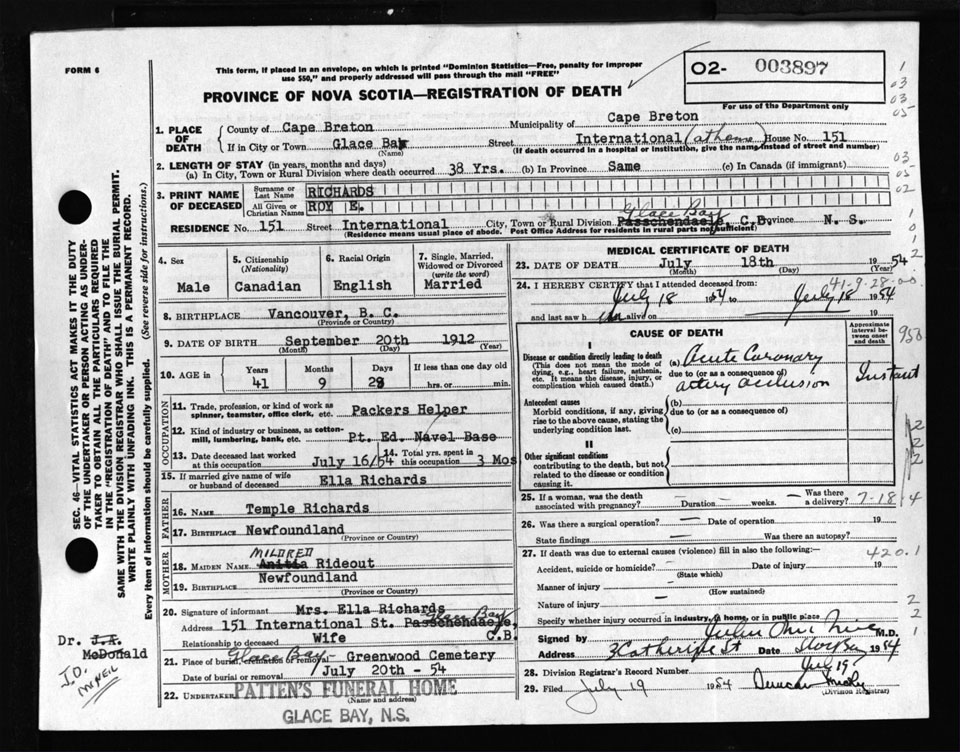 FORM 6
This form, if placed in an envelope, on which is printed "Dominion Statistics—Free, penalty for improper
use $50," and properly addressed will pass through the mail "FREE"
O2- 003897
For use of the Department only
PROVINCE OF NOVA SCOTIA—REGISTRATION OF DEATH
1. PLACE OF DEATH
County of Cape Breton Municipality of Cape Breton
If in City or Town Glace Bay (Name) Street International (at home) House No. 151
(If death occurred in a hospital or institution, give the name instead of street and number)
2. LENGTH OF STAY (in years, months and days)
(a) In City, Town or Rural Division where death occurred 38 Yrs. (b) In Province Same (c) In Canada (if immigrant)
3. PRINT NAME OF DECEASED
Surname or Last Name RICHARDS
All Given or Christian Names ROY E.
RESIDENCE No. 151 Street International City, Town or Rural Division Glace Bay Passchendaele, C.B. Province N. S.
(Residence means usual place of abode. Post Office Address for residents in rural parts not sufficient)
4. Sex
Male
5. Citizenship (Nationality)
Canadian
6. Racial Origin
English
7. Single, Married, Widowed or Divorced (write the word)
Married
8. BIRTHPLACE Vancouver, B. C.
(Province or Country)
9. DATE OF BIRTH September 20th 1912
(Month) (Day) (Year)
10. AGE in Years 41 Months 9 Days 28 If less than one day old hrs. or min.
OCCUPATION
11. Trade, profession, or kind of work as spinner, teamster, office clerk, etc. Packers Helper
12. Kind of industry or business, as cotton-mill, lumbering, bank, etc. Pt. Ed. Navel Base
13. Date deceased last worked at this occupation July 16/54
14. Total yrs. spent in this occupation 3 Mos
15. If married give name of wife or husband of deceased Ella Richards
FATHER
16. NAME Temple Richards
17. BIRTHPLACE Newfoundland
(Province or Country)
MOTHER
MILDRED
18. MAIDEN NAME Rideout
19. BIRTHPLACE Newfoundland
(Province or Country)
20. Signature of informant Mrs. Ella Richards
Address 151 International St. Passchendaele, Glace Bay, C.B.
Relationship to deceased Wife
21. Place of burial, cremation or removal Glace Bay - Greenwood Cemetery
Date of burial or removal July 20th - 54
22. UNDERTAKER PATTEN'S FUNERAL HOME
(Name and address)
GLACE BAY, N.S.
MEDICAL CERTIFICATE OF DEATH
23. DATE OF DEATH July 18th 1954
(Month) (Day) (Year)
41-9-28-00
24. I HEREBY CERTIFY that I attended deceased from:
July 18 1954 to July 18 1954
and last saw h im alive on 19
CAUSE OF DEATH
Approximate interval between onset and death
I
Disease or condition directly leading to death
(This does not mean the mode of dying, e.g., heart failure, asthenia, etc. It means the disease, injury, or complication which caused death.)
(a) Acute Coronary
due to (or as a consequence of)
artery occlusion
Instant
Antecedent causes
Morbid conditions, if any, giving rise to the above cause, stating the underlying condition last.
(b)
due to (or as a consequence of)
(c)
II
Other significant conditions
contributing to the death, but not related to the disease or condition causing it.
25. If a woman, was the death associated with pregnancy? — Duration — weeks. — Was there a delivery?
7-18
26. Was there a surgical operation? — Date of operation 19
State findings — Was there an autopsy?
27. If death was due to external causes (violence) fill in also the following:—
420.1
Accident, suicide or homicide? — Date of injury 19
(State which)
Manner of injury —
(How sustained)
Nature of injury —
Specify whether injury occurred in industry, a home, or in public place
Signed by M.D.
Address 3 Catherine St Date 1954
28. Division Registrar's Record Number
July 19
29. Filed July 19 1954 Duncan
(Division Registrar)
SEC. 46—VITAL STATISTICS ACT MAKES IT THE DUTY
OF THE UNDERTAKER OR PERSON ACTING AS UNDER-
TAKER TO OBTAIN ALL THE PARTICULARS REQUIRED
IN THE "REGISTRATION OF DEATH" AND TO FILE THE
SAME WITH THE DIVISION REGISTRAR WHO SHALL ISSUE THE BURIAL PERMIT.
WRITE PLAINLY WITH UNFADING INK. THIS IS A PERMANENT RECORD.
Every item of information should be carefully supplied. (See reverse side for instructions.)
Dr. J.A. McDonald
J.O. McNEIL
1
03
03
05
03
05
02